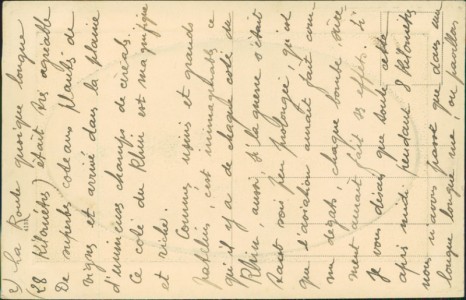 2) La Route quoique longue
(28 Kilomètres) était très agréable
De superbes coteaux plantés de
vignes et arrivé dans la plaine
d'immenses champs de céréales.
Ce coté du Rhin est magnifique
et riche.
Comme usines et grands
patelins, c'est inimaginable ce
qu'il y a de chaque coté du
Rhin, aussi, si la guerre s'était
tant soit peu prolongée qu'est
que l'aviation aurait fait com-
me dégats chaque bombe sure-
ment aurait fait ses effets. Si
Je vous disais que toute cette
après midi pendant 8 Kilomètres
nous n'avons passé que dans une
longue longue rue, ou pavillon